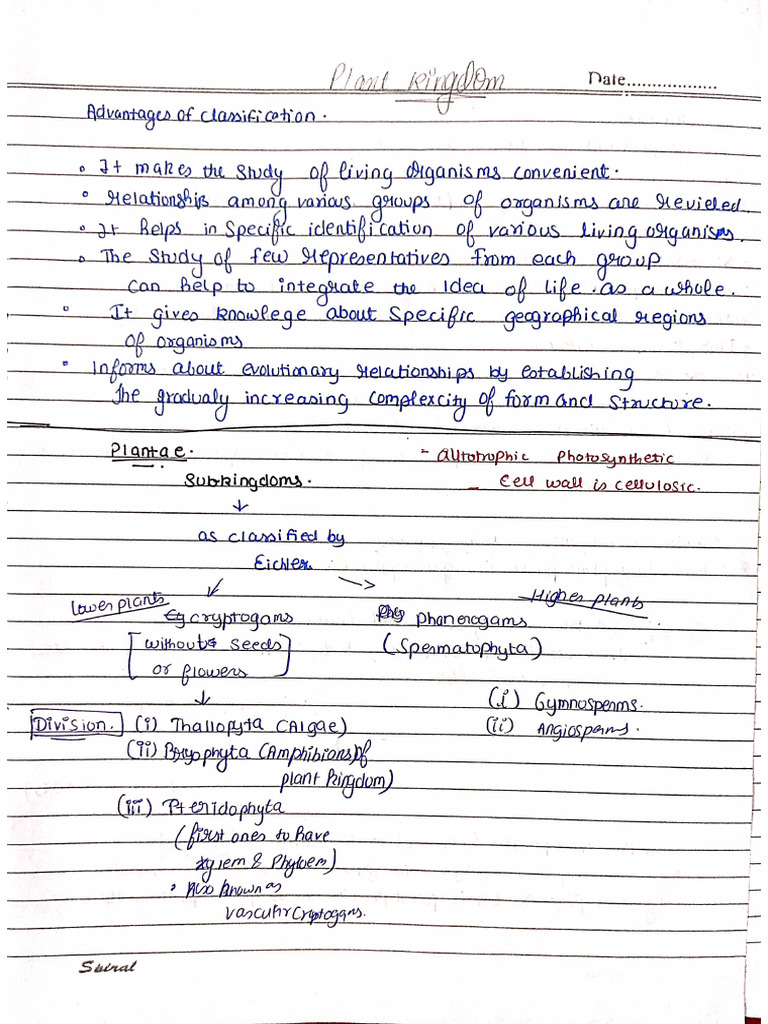 Plant Kingdom
Date..................
Advantages of classification.
• It makes the study of living organisms convenient.
• Relationships among various groups of organisms are revieled.
• It helps in specific identification of various living organisms.
• The study of few representatives from each group
can help to integrate the idea of life as a whole.
• It gives knowlege about specific geographical regions
of organisms
• Informs about evolutionary relationships by establishing
the gradualy increasing complexcity of form and structure.
Plantae.
- Autotrophic Photosynthetic
Subkingdoms.
- Cell wall is cellulosic.
↓
as classified by
Eichler
lower plants
Higher plants
cryptogams
Phanerogams
[without seeds
or flowers]
(Spermatophyta)
↓
(i) Gymnosperms.
Division. (i) Thallopyta (Algae)
(ii) Angiosperms.
(ii) Bryophyta (Amphibians of
plant kingdom)
(iii) Pteridophyta
(first ones to have
xylem & Phyloem)
• Also known as
vascular cryptogams.
Spiral